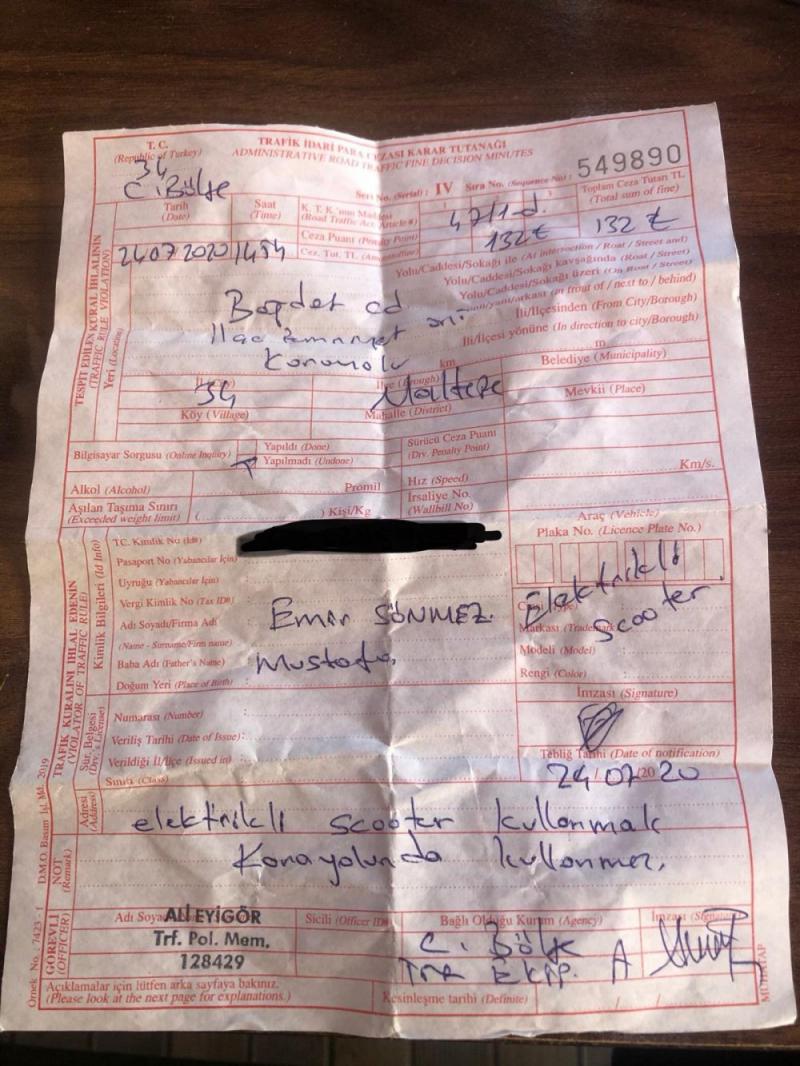 T. C.
(Republic of Turkey)
34
C. Bölge
TRAFİK İDARİ PARA CEZASI KARAR TUTANAĞI
ADMINISTRATIVE ROAD TRAFFIC FINE DECISION MINUTES
Seri No. (Serial) : IV Sıra No. (Sequence No) : 549890
TESPİT EDİLEN KURAL İHLALİNİN
(TRAFFIC RULE VIOLATION)
Tarih
(Date)
Saat
(Time)
K. T. K. 'nın Maddesi
(Road Traffic Act. Article #)
47/1-d.
Toplam Ceza Tutarı TL
(Total sum of fine)
Ceza Puanı (Penalty Point)
132 ₺
132 ₺
24.07 2020 1454
Yeri (Location)
Yolu/Caddesi/Sokağı ile (At intersection / Roat / Street and)
Yolu/Caddesi/Sokağı kavşağında (Roat / Street)
Yolu/Caddesi/Sokağı üzeri (On Roat / Street)
önü/yanı/arkası (in front of / next to / behind)
İli/İlçesinden (From City/Borough)
İli/İlçesi yönüne (In direction to city/Borough)
Bağdat cd
km
m
34
Maltepe
Belediye (Municipality)
Köy (Village)
Mahalle (District)
Mevkii (Place)
Bilgisayar Sorgusu (Online Inquiry)
Yapıldı (Done)
Yapılmadı (Undone)
Sürücü Ceza Puanı
(Drv. Penalty Point)
Alkol (Alcohol) Promil
Hız (Speed) Km/s.
Aşılan Taşıma Sınırı
(Exceeded weight limit) ( ) Kişi/Kg
İrsaliye No.
(Wallbill No)
TRAFİK KURALINI İHLAL EDENİN
(VIOLATOR OF TRAFFIC RULE)
Kimlik Bilgileri (Id Info)
TC. Kimlik No (Id#)
Pasaport No (Yabancılar İçin)
Uyruğu (Yabancılar İçin)
Vergi Kimlik No (Tax ID#)
Adı Soyadı/Firma Adı
(Name - Surname/Firm name)
Emir SÖNMEZ
Baba Adı (Father's Name)
Mustafa
Doğum Yeri (Place of Birth)
Araç (Vehicle)
Plaka No. (Licence Plate No.)
Elektrikli
Scooter
Modeli (Model)
Rengi (Color)
İmzası (Signature)
Sür. Belgesi
(Drv.'s License)
Numarası (Number)
Veriliş Tarihi (Date of Issue):
Verildiği İl/İlçe (Issued in)
Sınıfı (Class)
Tebliğ Tarihi (Date of notification)
24/07/2020
Adresi
(Address)
elektrikli scooter kullanmak
NOT
(Remark)
Karayolunda kullanmez.
GÖREVLİ
(OFFICER)
ALİ EYİGÖR
Trf. Pol. Mem.
128429
Sicili (Officer ID#)
Bağlı Olduğu Kurum (Agency)
C. Bölge
EKİP. A
Açıklamalar için lütfen arka sayfaya bakınız.
(Please look at the next page for explanations.)
Kesinleşme tarihi (Definite)
/ /
Örnek No. : 7423 - 1 D.M.O. Basım İşl. Md. 2019
MUHATAP